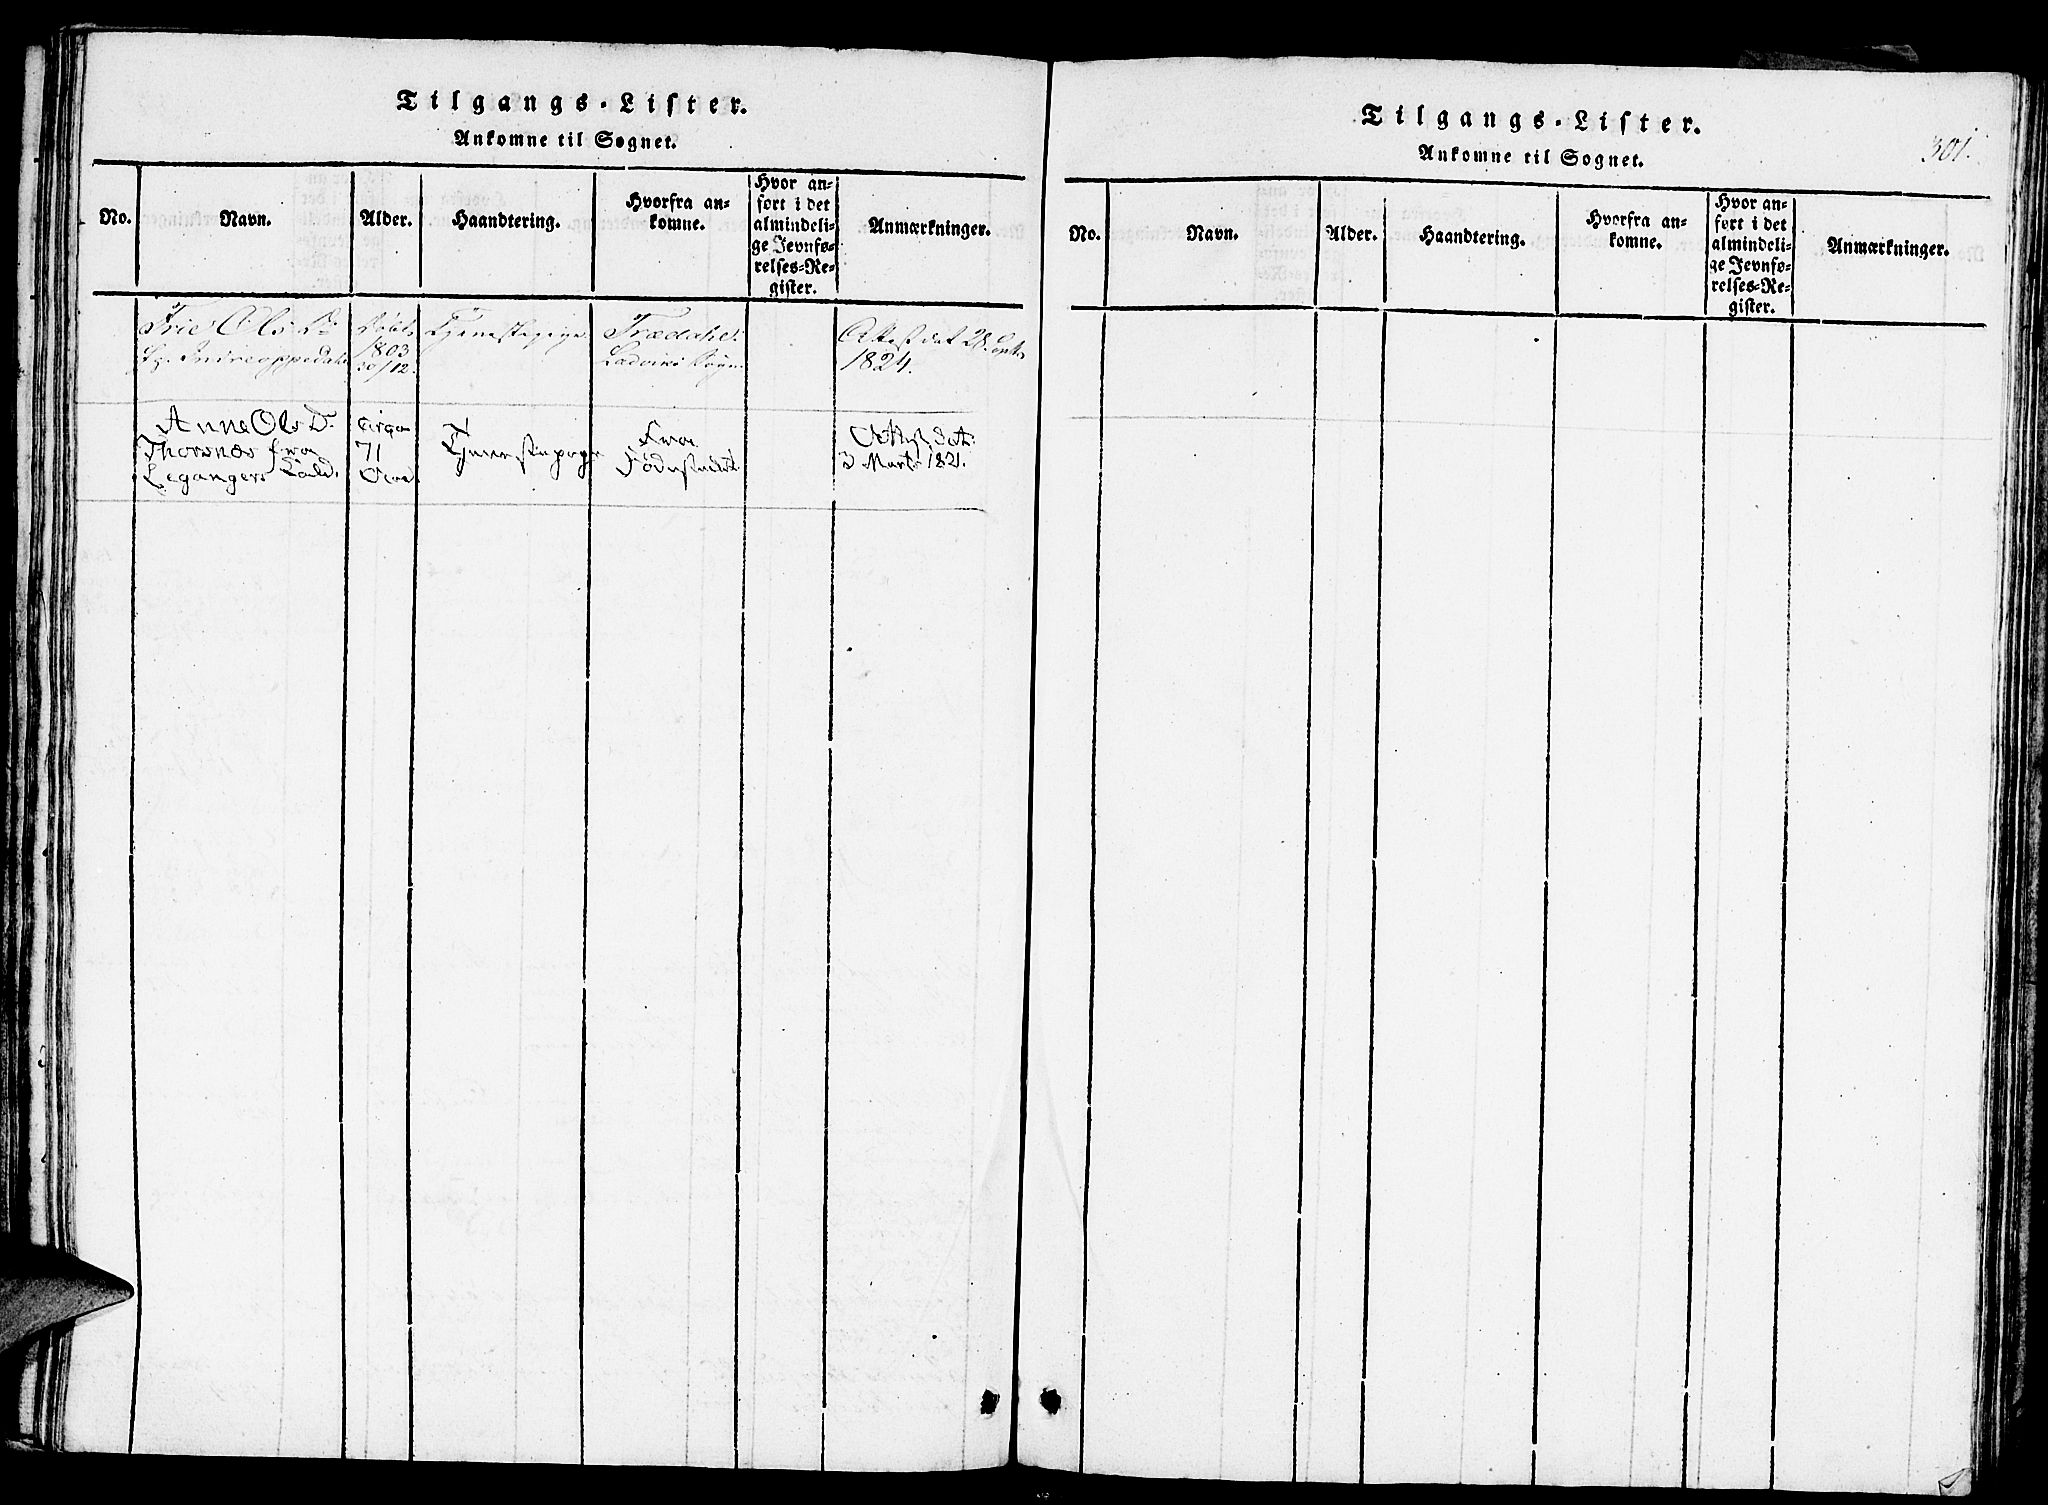 Tilgangs-Lister.
Ankomne til Sognet.
No.
Navn.
Alder.
Haandtering.
Hvorfra an-
komne.
Hvor an-
ført i det
almindeli-
ge Jevnfø-
relses-Re-
gister.
Anmærkninger.
Ols D.
Indreoppedahl
Døbt
1803
30/12.
Tjenestepige
Trædahl
Ladviks Sogn
Attest dat 28 Septr
1824.
Anne Ols D.
Thorsnæs fra
Leganger Kald.
circa
71
Tjenestepige
Fra
Fødestedet
Attest Dat:
3 Marts 1821.
Tilgangs-Lister.
Ankomne til Sognet.
301.
No.
Navn.
Alder.
Haandtering.
Hvorfra an-
komne.
Hvor an-
ført i det
almindeli-
ge Jevnfø-
relses-Re-
gister.
Anmærkninger.